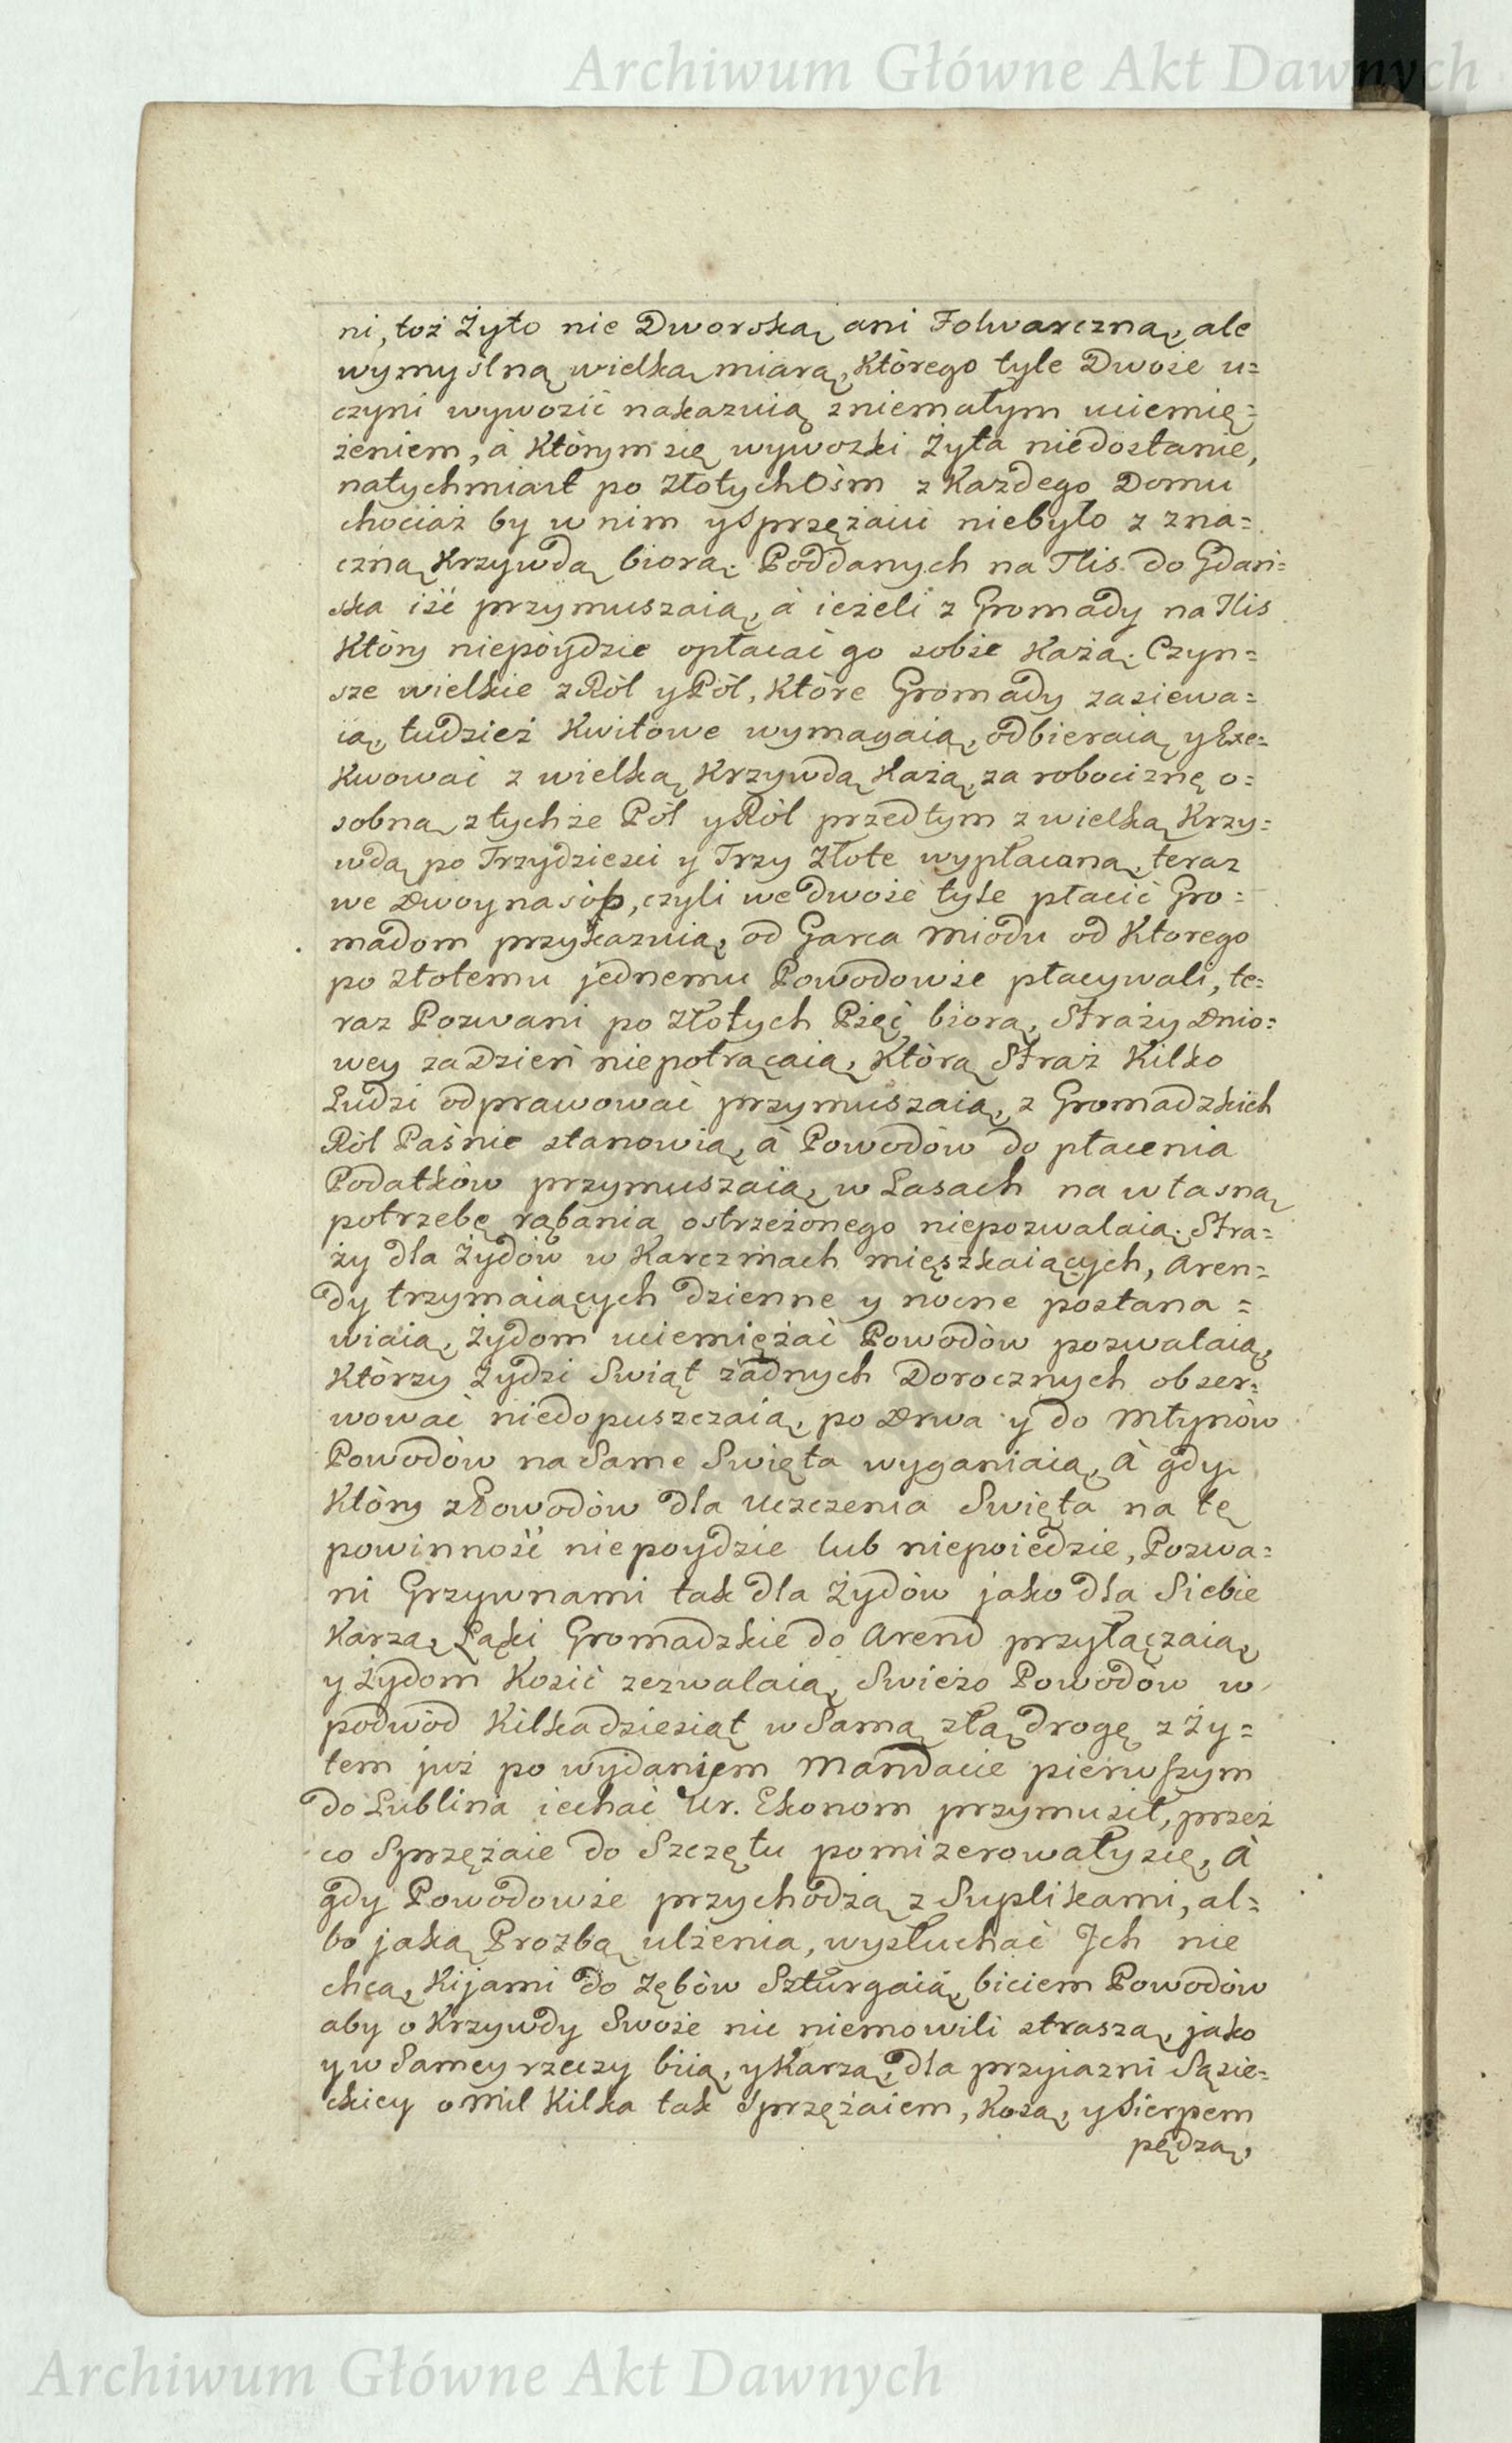 Archiwum Główne Akt Dawnych
ni, toż Żyto nie Dworską, ani Folwarczną, ale
wymyślną wielką miarą, Którego tyle Dwoie u=
czyni wywozić nakazuią z niemałym uciemię=
żeniem, à Którym się wywozki Żyta niedostanie,
natychmiast po Złotych Ośm z Każdego Domu
chociaż by w nim y Sprzężaiu niebyło z zna=
czną Krzywdą biorą. Poddanych na Flis do Gdań=
ska iść przymuszaią, à ieżeli z Gromady na Flis
Który niepóydzie opłacać go sobie Każą. Czyn=
sze wielkie z Ról y Pól, Które Gromady zasiewa=
ią, tudzież Kwitowe wymagaią, odbieraią y Exe=
Kwować z wielką Krzywdą Każą, za robociznę o=
sobną z tychże Pól y Ról przedtym z wielką Krzy=
wdą po Trzydzieści y Trzy Złote wypłacaną, teraz
we Dwoynasób, czyli we dwoie tyle płacić Gro=
madom przykazuią, od Garca Miodu od Ktorego
po złotemu jednemu Powodowie płacywali, te=
raz Pozwani po Złotych Pięć biorą, Straży Dnio=
wey za Dzień niepotrącaią, Którą Straż Kilko
Ludzi odprawować przymuszaią, z Gromadzkich
Ról Paśnie stanowią, à Powodów do płacenia
Podatków przymuszaią, w Lasach na własną
potrzebę rąbania ostrzeżonego niepozwalaią. Stra=
ży dla Żydów w Karczmach mięszkaiących, Aren=
dy trzymaiących dzienne y nocne postana=
wiaią, Żydom uciemiężać Powodów pozwalaią,
Którzy Żydzi Swiąt żadnych Dorocznych obser=
wować niedopuszczaią, po Drwa y do Młynów
Powodów na Same Swięta wyganiaią, à gdy
Który z Powodów dla uczczenia Swięta na tę
powinność niepoydzie lub niepoiedzie, Pozwa=
ni Grzywnami tak dla Żydów jako dla Siebie
Karzą, Łąki Gromadzkie do Arend przyłączaią,
y Żydom Kosić zezwalaią, Swieżo Powodów w
podwód Kilkadziesiąt w Samą złą drogę z Ży=
tem już po wydanięm Mandacie pierwszym
do Lublina iechać Ur. Ekonom przymusił, przez
co Sprzężaie do Szczętu pomizerowały się, à
gdy Powodowie przychodzą z Suplikami, al=
bo jaką Prozbą ulżenia, wysłuchać Ich nie
chcą, Kijami do Zębów Szturgaią, biciem Powodów
aby o Krzywdy Swoie nic niemowili straszą, jako
y w Samey rzeczy biią, y Karzą, dla przyiazni Sąsie=
ckiey o mil Kilka tak Sprzężaiem, Kosą, y Sierpem
pędzą,
Archiwum Główne Akt Dawnych